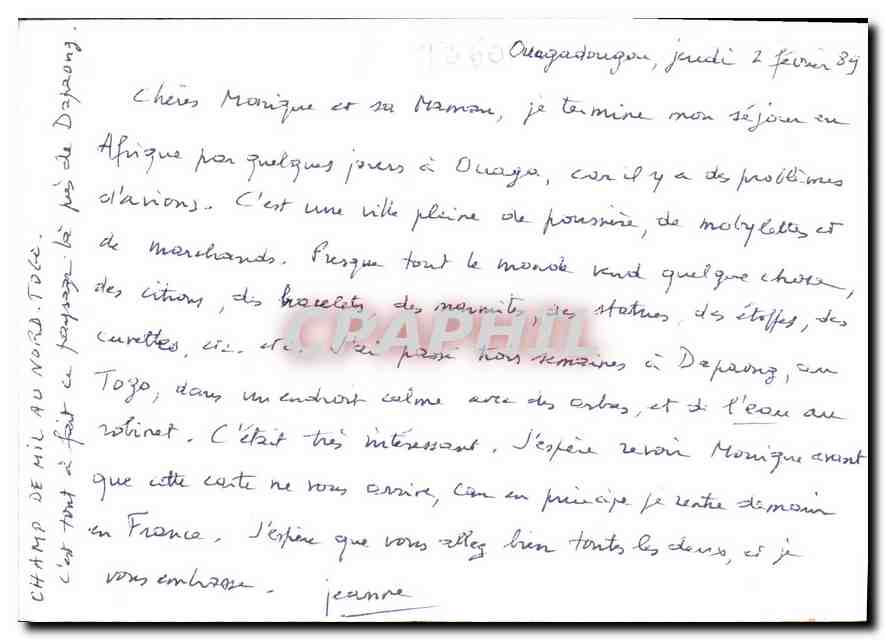 Ouagadougou, jeudi 2 février 89
Chères Monique et sa Maman, je termine mon séjour en
Afrique par quelques jours à Ouaga, car il y a des problèmes
d'avions. C'est une ville pleine de poussière, de mobylettes et
de marchands. Presque tout le monde vend quelque chose,
des citrons, des bracelets, des marmites, des statues, des étoffes, des
cuvettes, etc. etc. J'ai passé trois semaines à Dapaong, au
Togo, dans un endroit calme avec des arbres, et de l'eau au
robinet. C'était très intéressant. J'espère revoir Monique avant
que cette carte ne vous arrive, car en principe je rentre demain
en France. J'espère que vous allez bien toutes les deux, et je
vous embrasse. jeanne
CHAMP DE MIL AU NORD-TOGO.
c'est tout à fait ce paysage là près de Dapaong.
CPAPHIL